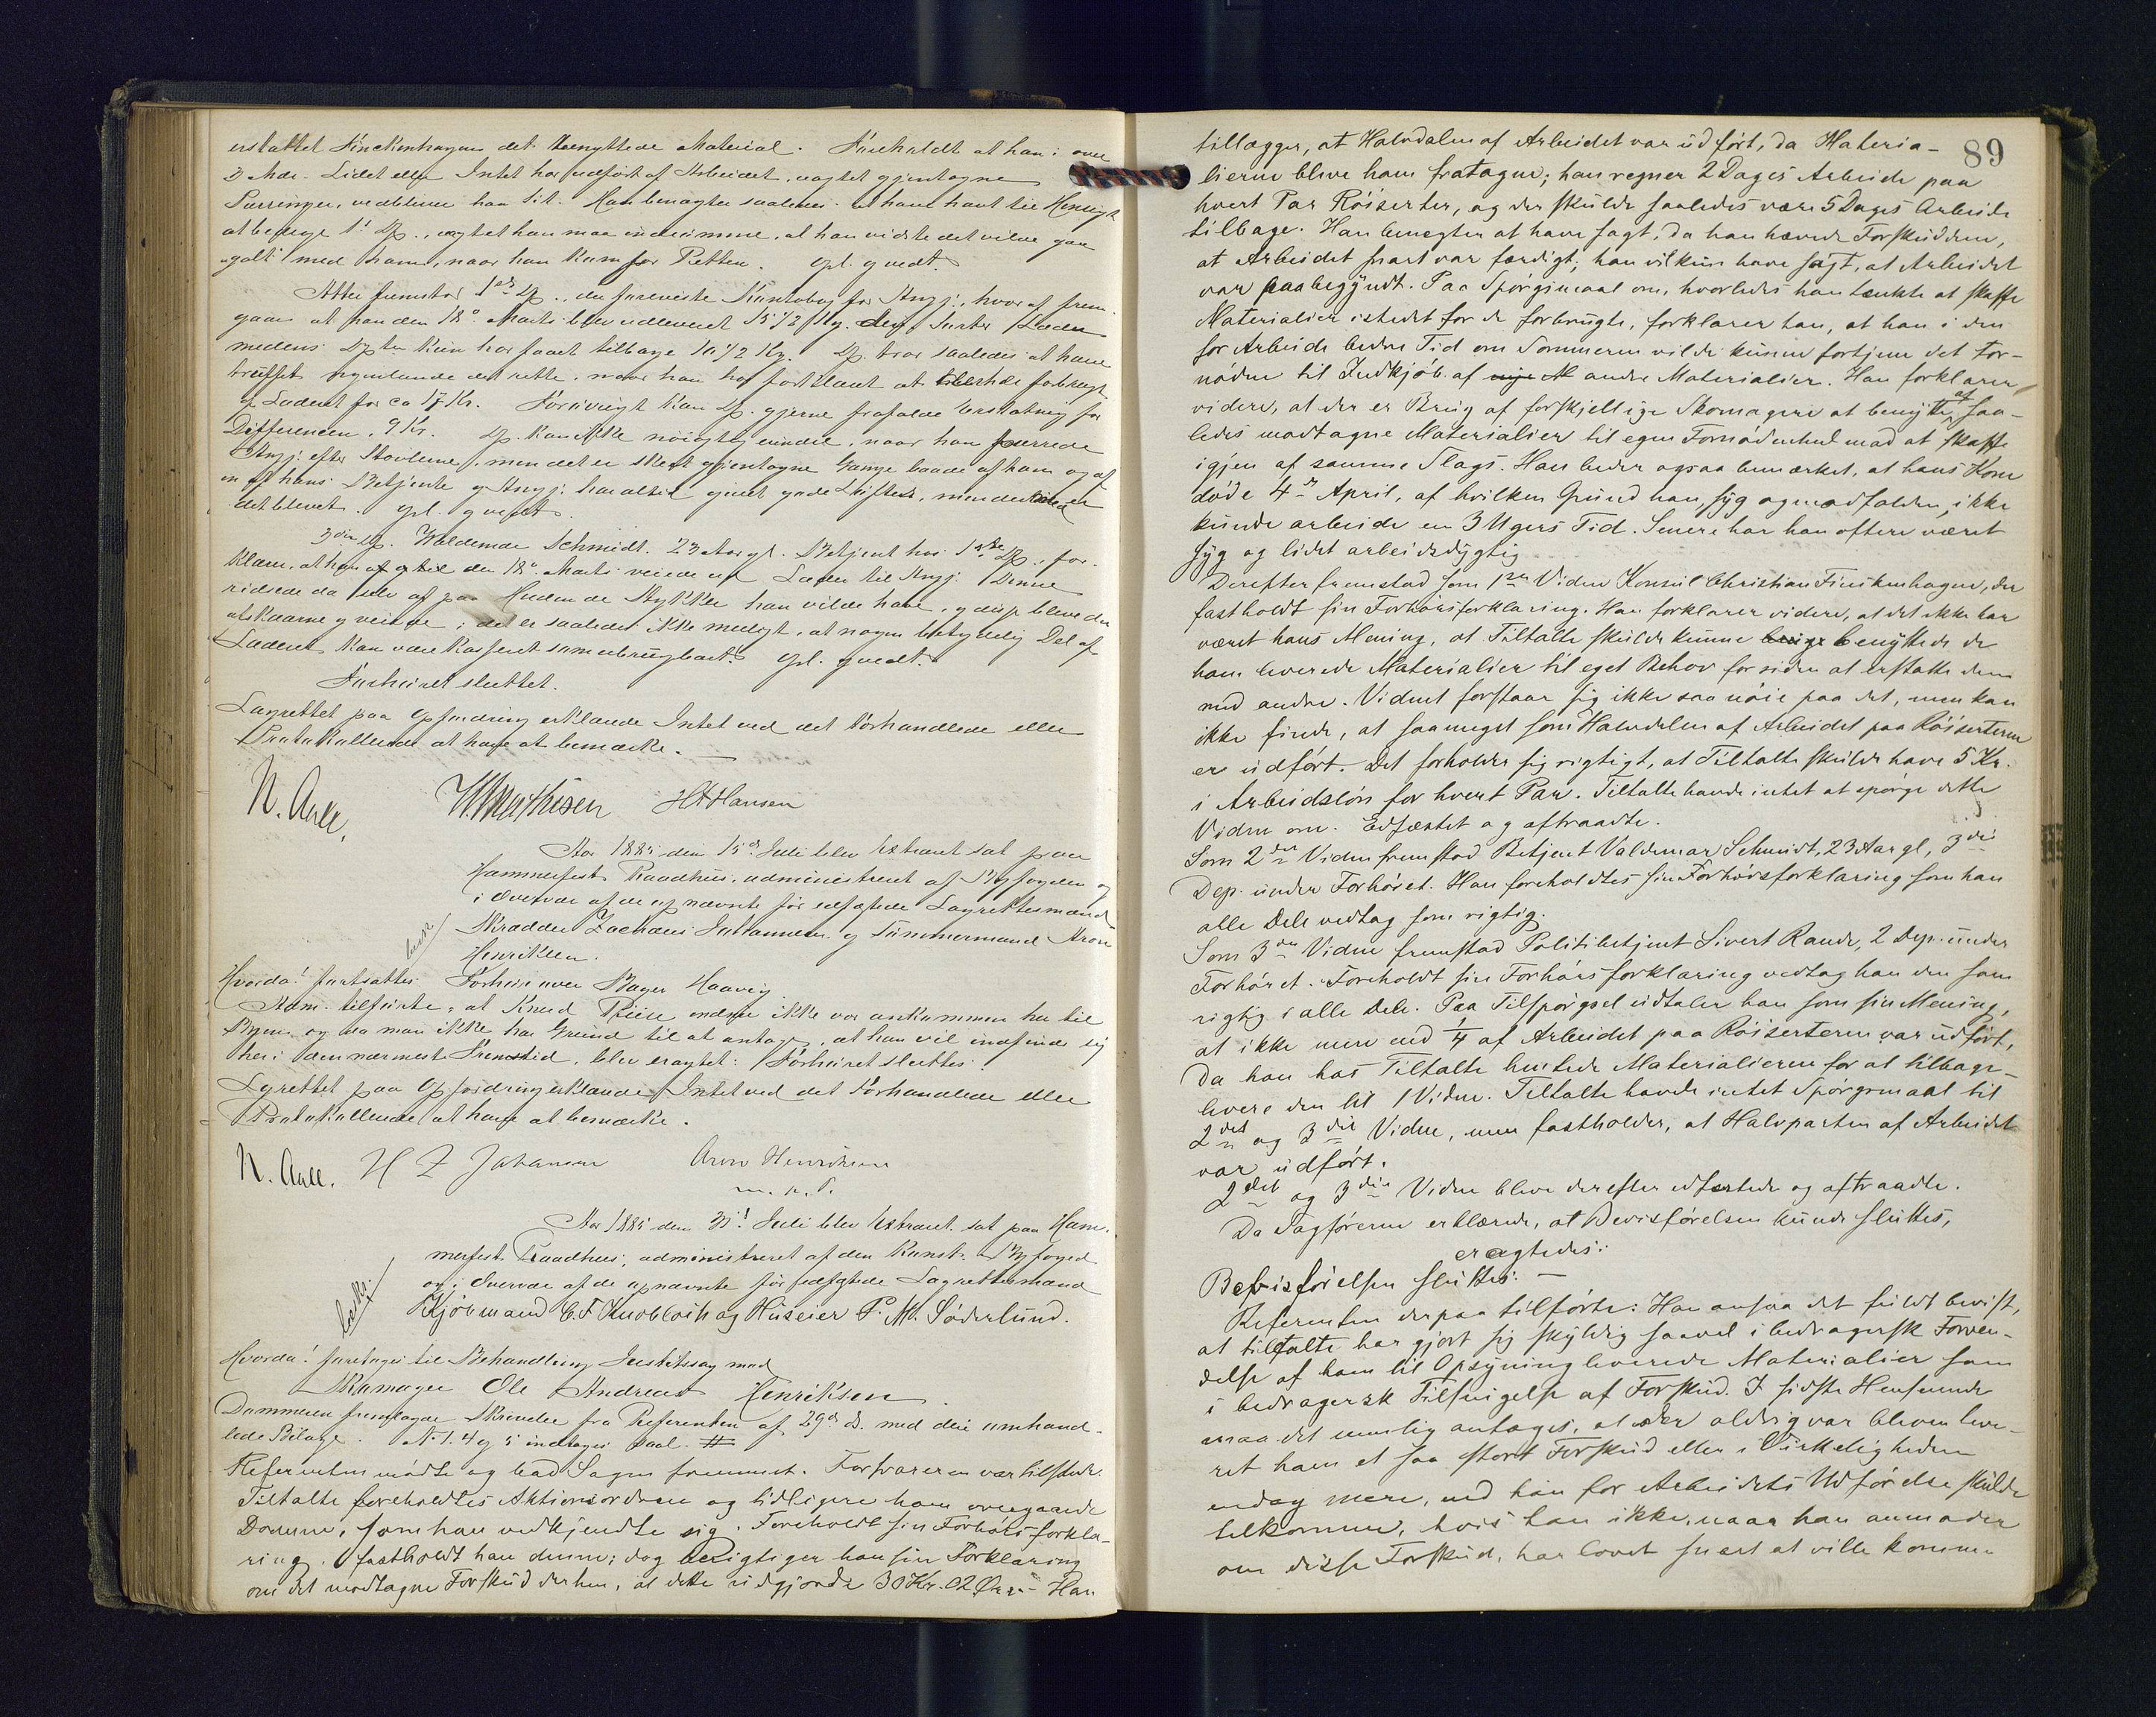 erstattet Finckenhagen det benyttede Material. Foreholdt at han i over
3 Mdr. Lidet eller Intet har udført af Arbeidet, uagtet gjentagne
Purringer, vedbliver han sit. Han benægter saaledes at have havt til Hensigt
at bedrage 1' Dp., uagtet han maa indrømme, at han vidste det vilde gaa
galt med ham, naar han kom for Retten. Opl. g vedt.
Atter fremstod 1ste Dp., der foreviste Kontobog for Angj., hvoraf frem-
gaar at han den 18de Marts blev udleveret 15 1/2 Kg. Læder
medens Dp. kun har faaet tilbage 10 1/2 Kg. Dp. tror saaledes at have
truffet nogenlunde det rette, naar han har forklaret at forbrugt
Læderet for ca 17 Kr. Forøvrigt kan Dp. gjerne frafalde Erstatning for
Differencen, 9 Kr. Dp. kan ikke nøiagtig erindre, naar han purrede
Angj. efter Støvlerne, men det er skeet gjentagne Gange baade af ham og af
en af hans Betjente og Angj. har altid givet gode Løfter, men derved er
det blevet. Opl. g vedt.
3die Dp. Waldemar Schmidt. 23 Aar gl. Betjent hos 1ste Dp., for-
klarer, at han den 18de Marts veiede ud Læder til Angj. Denne
ridsede da selv op paa Huden de Stykker han vilde have, og disse bleve da
afskaarne g veiede; det er saaledes ikke muligt, at nogen betydelig Del af
Læderet kan være kasseret som ubrugbart. Opl. g vedt.
Forhøret sluttet.
Lagrettet paa Opfordring erklærede Intet ved det Forhandlede eller
Protokollerede at have at bemærke.
N. Aall. W. Mathisen H A Hansen
Aar 1885 den 15de Juli blev Extraret sat paa
Hammerfest Raadhus, administreret af Byfogden og
i Overvær af de opnævnte før edfæstede Lagrettesmænd
Skrædder Zacharias Johannesen og Tømmermand Aron
Henriksen.
Hvorda! fortsattes Forhør over Bager Haavig
Adm. tilførte, at Knud Reise endnu ikke var ankommen her til
Byen og da man ikke har Grund til at antage, at han vil indfinde sig
her i den nærmeste Fremtid, blev eragtet: Forhøret sluttes.
Lagrettet paa Opfordring erklærede Intet ved det Forhandlede eller
Protokollerede at have at bemærke.
N. Aall. H Z Johansen Aron Henriksen
m. p. P.
Aar 1885 den 31! Juli blev Extraret sat paa Ham-
merfest Raadhus, administreret af den Konst. Byfoged
og i Overvær af de opnævnte før edfæstede Lagrettesmænd
Kjøbmand C. F. Knobloch og Huseier P. M. Söderlund.
Hvorda! foretoges til Behandling Justitssag mod
Skomager Ole Andreas Henriksen.
Dommeren fremlagde Skrivelse fra Referenten af 29de ds. med deri omhand-
lede Bilage. N. 1. 4 og 5 indtages saal. #
Referenten mødte og bad Sagen fremmet. Forsvareren var tilstede.
Tiltalte foreholdtes Aktionsordren og tidligere ham overgaaede
Domme, som han vedkjendte sig. Foreholdt sin Forhørsforkla-
ring, fastholdt han denne; dog berigtiger han sin Forklaring
om det modtagne Forskud derhen, at dette udgjorde 30 Kr. 02 Øre. - Han
89
tillægger, at Halvdelen af Arbeidet var udført, da Materia-
lierne bleve ham fratagne; han regner 2 Dages Arbeide paa
hvert Par Röiserter, og der skulde saaledes være 5 Dages Arbeide
tilbage. Han benegter at have sagt, da han hævede Forskuddene,
at Arbeidet snart var færdigt; han vil kun have sagt, at Arbeidet
var paabegyndt. Paa Spörgsmaal om, hvorledes han tænkte at skaffe
Materialier istedet for de forbrugte, forklarer han, at han i den
for Arbeide bedre Tid om Sommeren vilde kunne fortjene det for-
nødne til Indkjöb af nye M andre Materialier. Han forklarer
videre, at der er Brug af forskjellige Skomagere at benytte af saa-
ledes modtagne Materialier til egen Fornödenhed mod at skaffe
igjen af samme Slags. Han beder ogsaa bemærket, at hans Kone
döde 4de April, af hvilken Grund han, syg og medfalden, ikke
kunde arbeide en 3 Ugers Tid. Senere har han oftere været
syg og lidet arbeidsdygtig.
Derefter fremstod som 1ste Vidne Konsul Christian Finckenhagen, der
fastholdt sin Forhörsforklaring. Han forklarer videre, at det ikke har
været hans Mening, at Tiltalte skulde kunne benyttede de
ham leverede Materialier til eget Behov for siden at erstatte dem
med andre. Vidnet forstaar sig ikke saa nöie paa det, men kan
ikke finde, at saa meget som Halvdelen af Arbeidet paa Röiserterne
er udfört. Det forholder sig rigtigt, at Tiltalte skulde have 5 Kr.
i Arbeidslön for hvert Par. Tiltalte havde intet at spörge dette
Vidne om. Edfæstet og aftraadte.
Som 2det Vidne fremstod Betjent Valdemar Schmidt, 23 Aar gl, 3die
Dep. under Forhöret. Han foreholdtes sin Forhörsforklaring som han
alle Dele vedtog som rigtig.
Som 3die Vidne fremstod Politibetjent Sivert Rande, 2 Dep. under
Forhöret. Foreholdt sin Forhörsforklaring vedtog han den som
rigtig i alle Dele. Paa Tilspörgsel udtaler han som sin Mening,
at ikke mere end 1/4 af Arbeidet paa Röiserterne var udfört,
da han hos Tiltalte hentede Materialierne for at tilbage-
levere dem til 1 Vidne. Tiltalte havde intet Spörgsmaal til
2det og 3die Vidne, men fastholder, at Halvparten af Arbeidet
var udfört.
2det og 3die Vidne bleve derefter edfæstede og aftraadte.
Da Sagförerne erklærede, at Bevisförelsen kunde sluttes,
eragtedes:
Bevisförelsen sluttes. —
Referenten derpaa tilförte: Han ansaa det fuldt bevist,
at tiltalte har gjort sig skyldig saavel i bedragersk Forven-
delse af ham til Opsyning leverede Materialier som
i bedragersk Tilsnigelse af Forskud. I sidste Henseende
maa det nemlig antages, at der aldrig var bleven leve-
ret ham et saa stort Forskud eller i Virkeligheden
endog mere, end han for Arbeidets Udförelse skulde
tilkomme, hvis han ikke, naar han anmoder
om disse Forskud, har lovet snart at ville komme